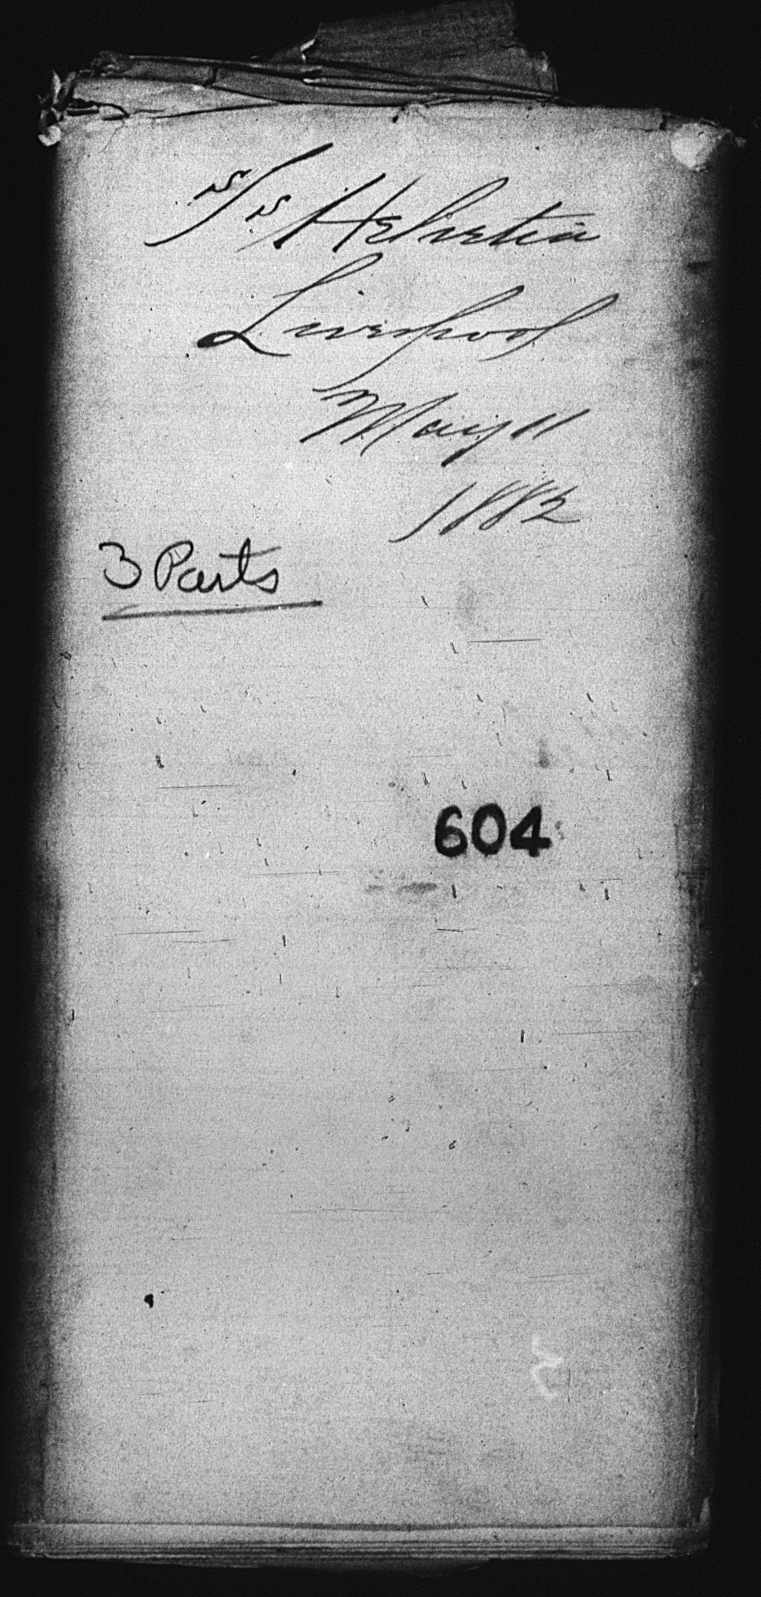 S/S Helvetia
Liverpool
May 11
1882
3 Parts
604